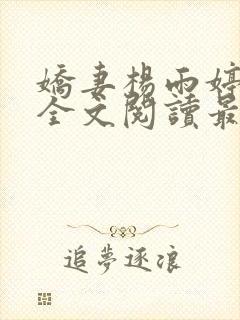 嬌妻楊雨婷
全文閱讀最
追夢逐浪